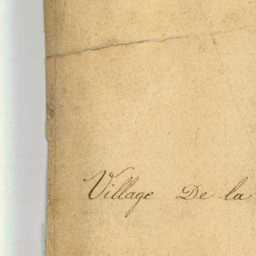 Village De la